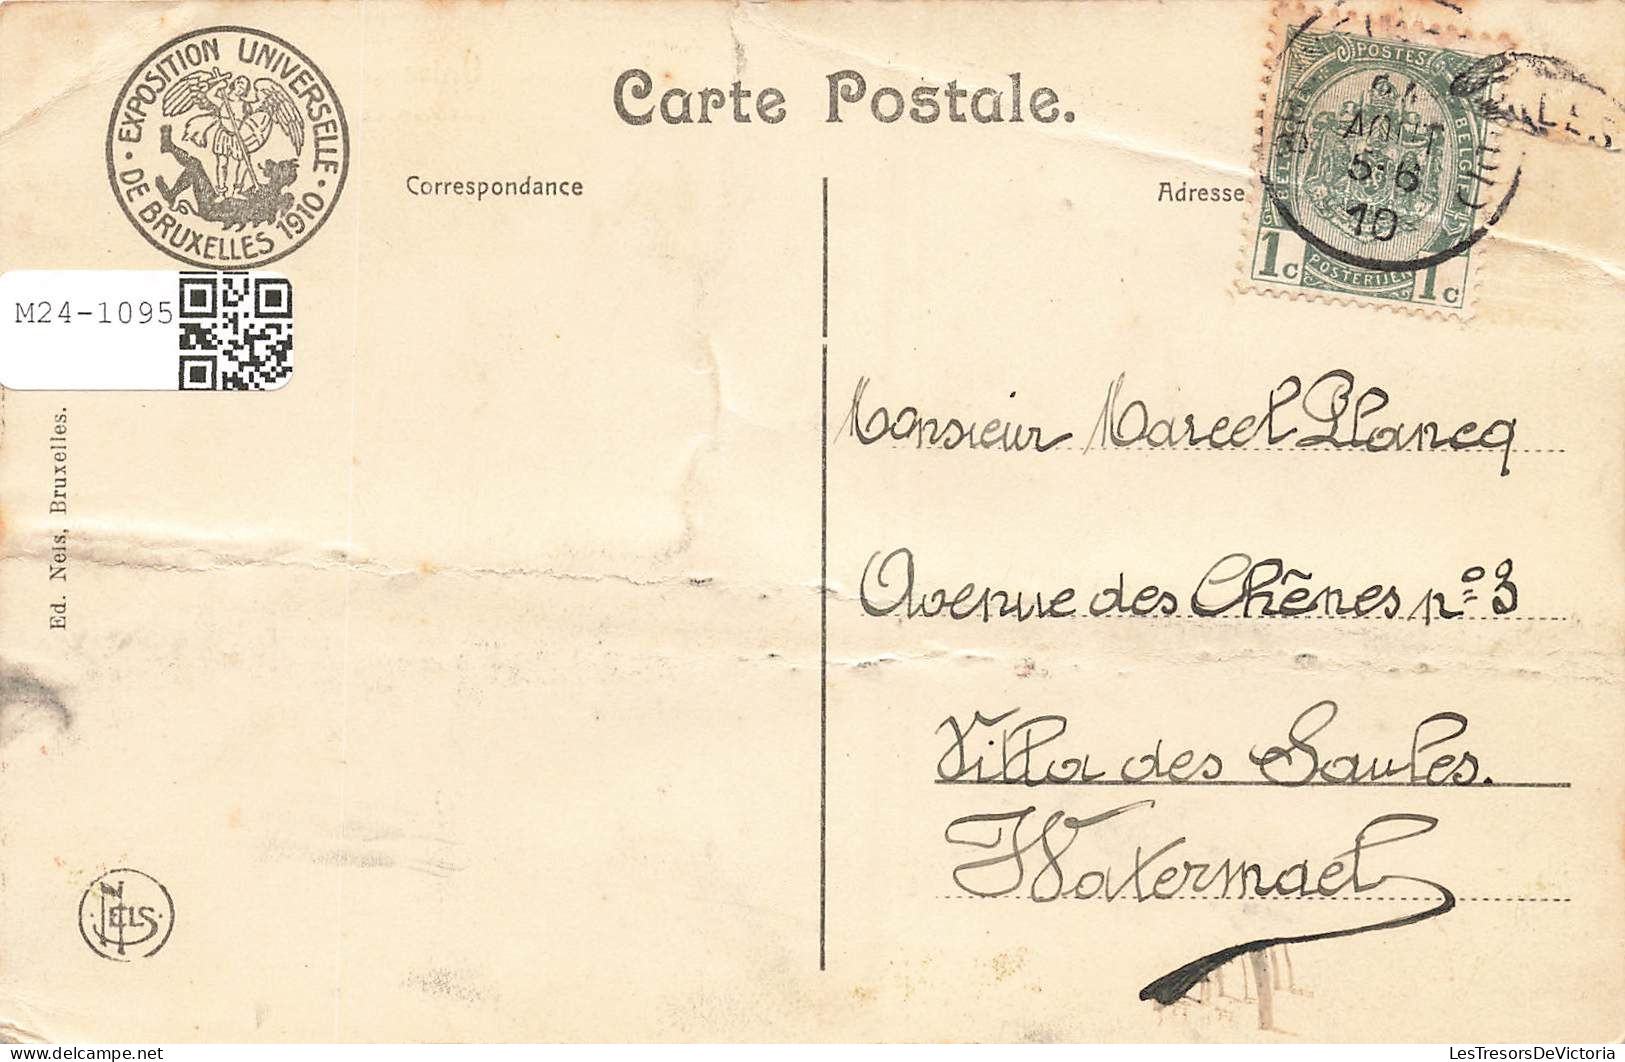 EXPOSITION UNIVERSELLE
DE BRUXELLES 1910
Carte Postale.
Correspondance
Adresse
POSTES
BELGI
AOUT
5-6
10
1c POSTERIJEN 1c
M24-1095
Ed. Nels, Bruxelles.
Monsieur Marcel Plancq
Avenue des Chênes nº 3
Villa des Saules.
Watermael
NELS
LesTresorsDeVictoria